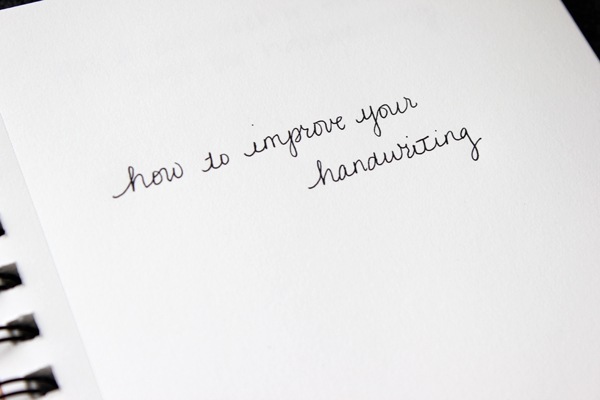 how to improve your
handwriting